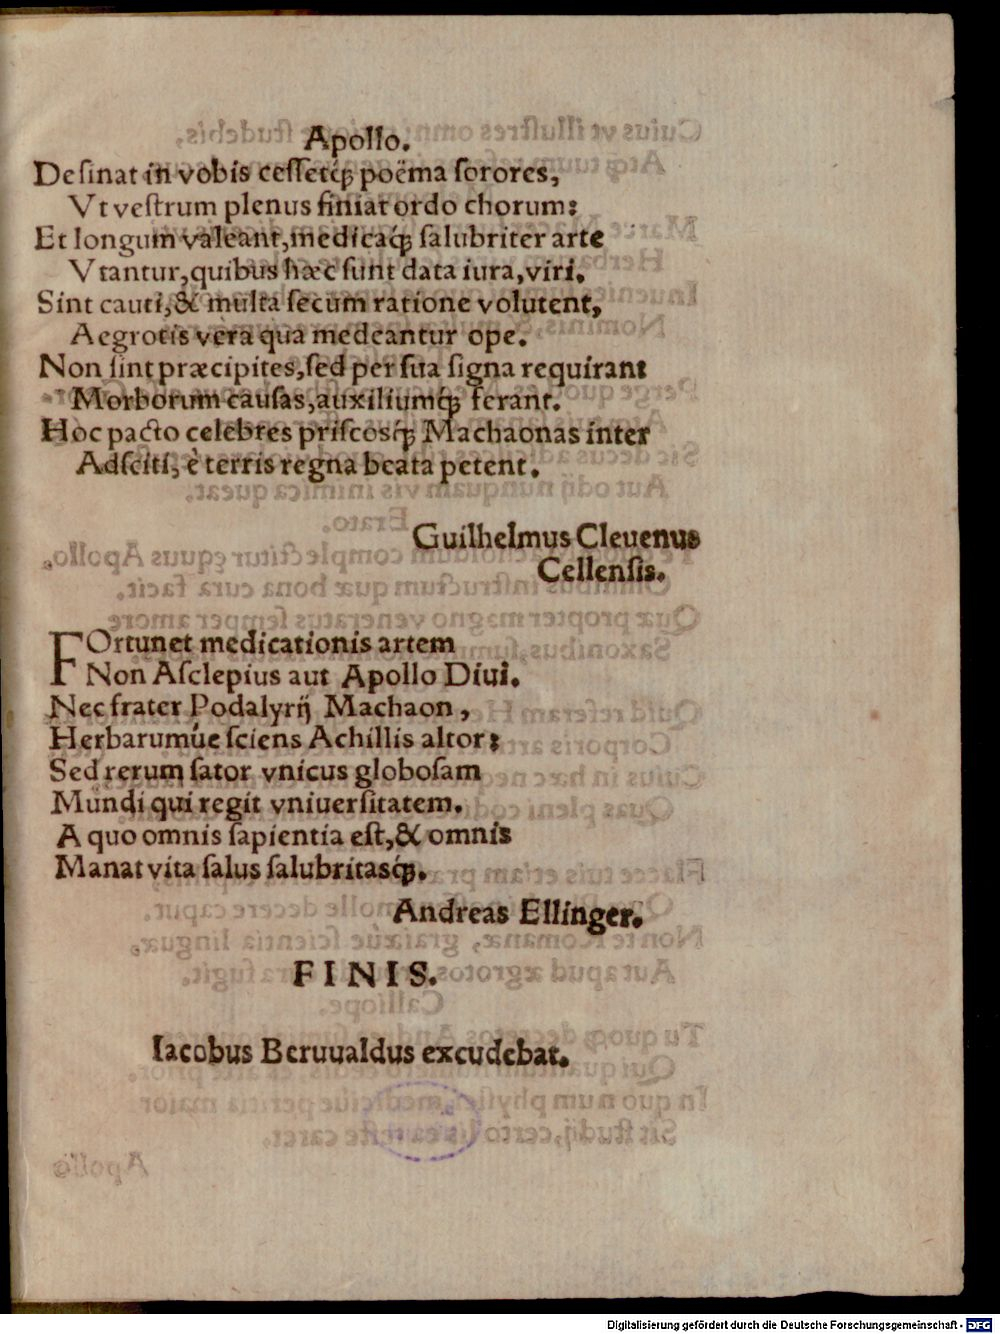 Apollo.
Deſinat in vobis ceſſetq́; poëma ſorores,
Vt veſtrum plenus finiat ordo chorum:
Et longum valeant, medicaq́; ſalubriter arte
Vtantur, quibus hæc ſunt data iura, viri.
Sint cauti, & multa ſecum ratione volutent,
Aegrotis vera qua medeantur ope.
Non ſint præcipites, ſed per ſua ſigna requirant
Morborum cauſas, auxiliumq́; ferant.
Hoc pacto celebres priſcosq́; Machaonas inter
Adſciti, è terris regna beata petent.
Guilhelmus Cleuenus
Cellenſis.
FOrtunet medicationis artem
Non Aſclepius aut Apollo Diui.
Nec frater Podalyrij Machaon,
Herbarumúe ſciens Achillis altor:
Sed rerum ſator vnicus globoſam
Mundi qui regit vniuerſitatem.
A quo omnis ſapientia eſt, & omnis
Manat vita ſalus ſalubritasq́;.
Andreas Ellinger.
FINIS.
Iacobus Beruualdus excudebat.
Digitalisierung gefördert durch die Deutsche Forschungsgemeinschaft - DFG